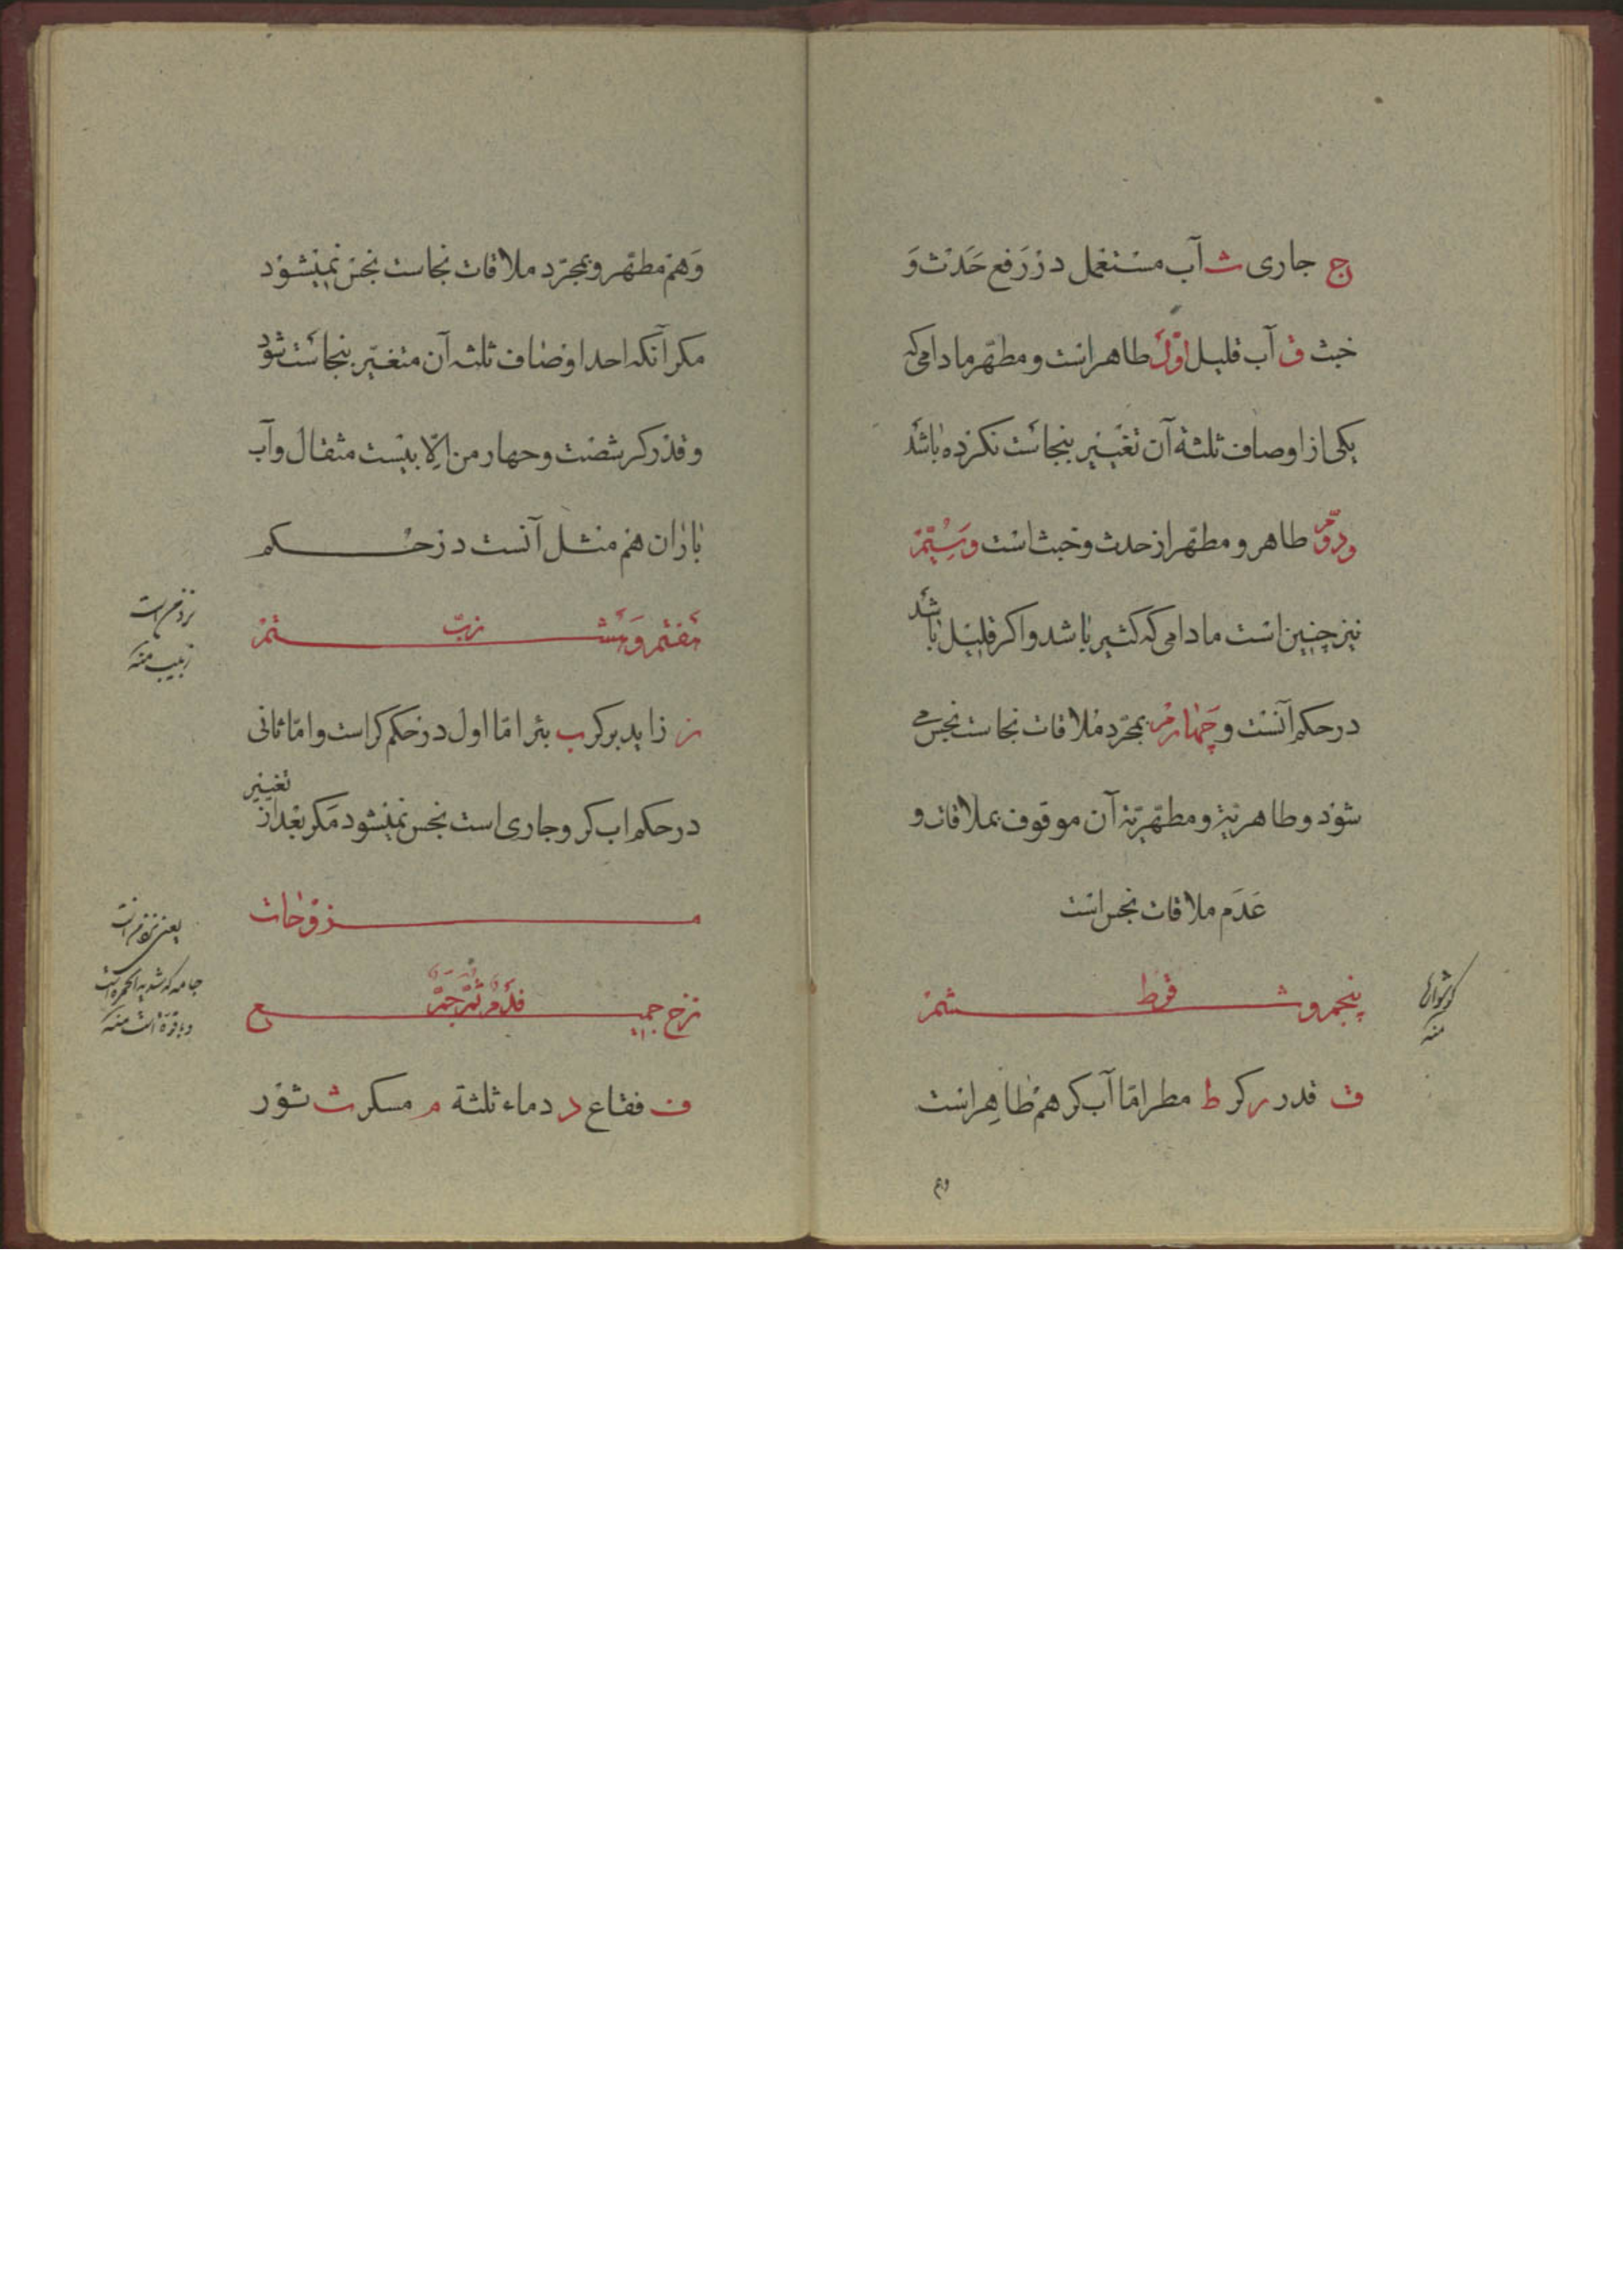 ج جاری ث آب مستعمل در رفع حَدَث وَ
خبث ق آب قلیل اوّل طاهر است و مطهّر مادامی که
یکی از اوصاف ثلثهٔ آن تغییر بنجاست نکرده باشد
ودوّم طاهر و مطهّر از حدث و خبث است وسِیُّمْ
نیز چنین است مادامی که کثیر باشد و اکر قلیل باشد
در حکم آنست و چهارم بمجرّد ملاقات نجاست نجس می
شود و طاهریّة و مطهّریّة آن موقوف بملاقات و
عَدَم ملاقات نجس است
پنجم و ششم
قرط
ق قدر ر کر ط مطر امّا آب کر هم طاهر است
وهم
کوشواره
منه
وَهم مطهّر و بمجرّد ملاقات نجاست نجس نمیشود
مکر آنکه احد اوصاف ثلثه آن متغیّر بنجاست شود
و قدر کر شصت و چهار من اِلّا بیست مثقال و آب
باران هم مثل آنست در حکم
هفتم وهشتم
زبّ
ز زاید بر کر ب بئر امّا اول در حکم کر است و امّا ثانی
در حکم اب کر و جاری است نجس نمیشود مکر بعد از تغییر
منزوحات
نزح جمیع
ف فقاع د دماء ثلثة م مسکر ث ثور
زبیب منه
یعنی
جامه که شدید الحمره است
منه